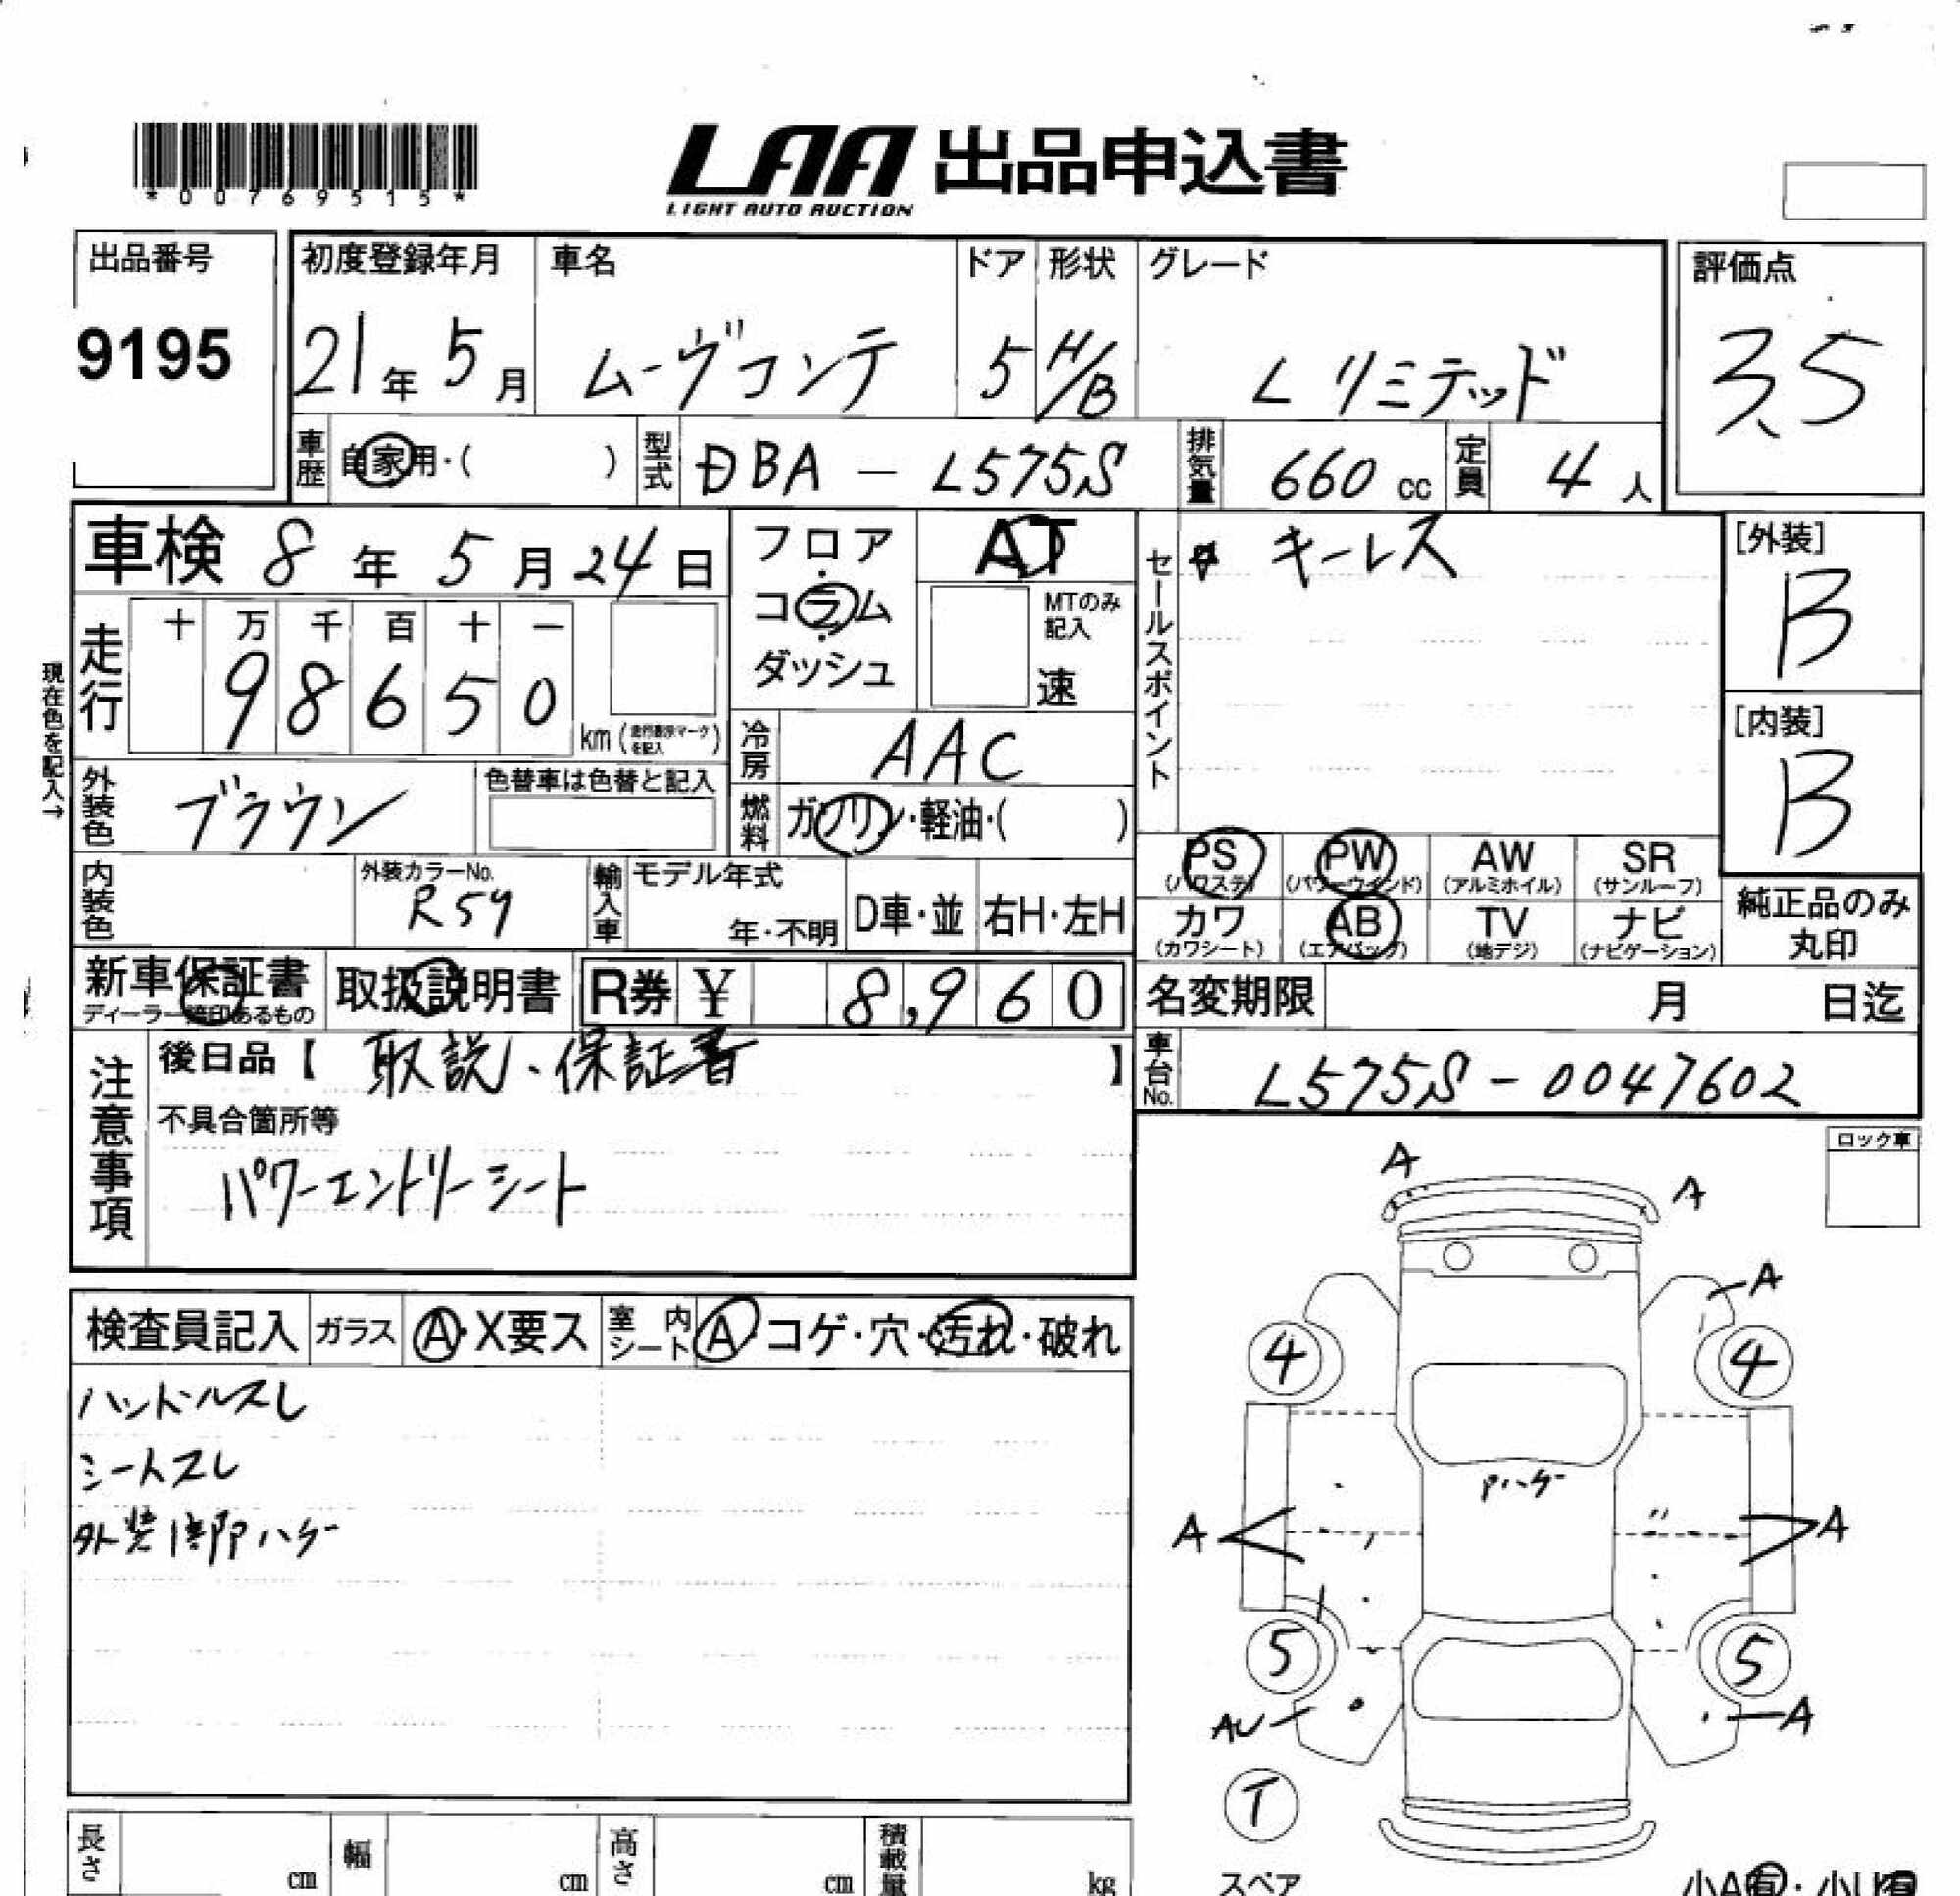 *00769515*
LAA 出品申込書
LIGHT AUTO AUCTION
出品番号
9195
初度登録年月
21年 5月
車名
ムーヴコンテ
ドア
5
形状
H/B
グレード
L リミテッド
評価点
3.5
車歴
自家用・( )
型式
DBA - L575S
排気量
660 cc
定員
4 人
車検 8年 5月 24日
フロア・コラム・ダッシュ
AT
MTのみ記入
速
セールスポイント
キーレス
[外装]
B
[内装]
B
現在色を記入→
走行
十 万 千 百 十 一
9 8 6 5 0
km (走行表示マークを記入)
冷房
AAC
外装色
ブラウン
色替車は色替と記入
燃料
ガソリン・軽油・( )
内装色
外装カラーNo.
R59
輸入車
モデル年式
年・不明
D車・並
右H・左H
PS (パワステ)
PW (パワーウインド)
AW (アルミホイル)
SR (サンルーフ)
カワ (カワシート)
AB (エアバック)
TV (地デジ)
ナビ (ナビゲーション)
純正品のみ丸印
新車保証書
ディーラー捺印あるもの
取扱説明書
R券 ¥ 8,960
名変期限 月 日迄
注意事項
後日品【 取説、保証書 】
不具合箇所等
パワーエントリーシート
車台No.
L575S - 0047602
ロック車
検査員記入
ガラス
A・X要ス
室内シート
A・コゲ・穴・汚れ・破れ
ハンドルスレ
シートスレ
A
A
A
4
4
Pハゲ
A
A
5
5
AU
A
T
スペア
長さ cm
幅 cm
高さ cm
積載量 kg
小A有・小U有